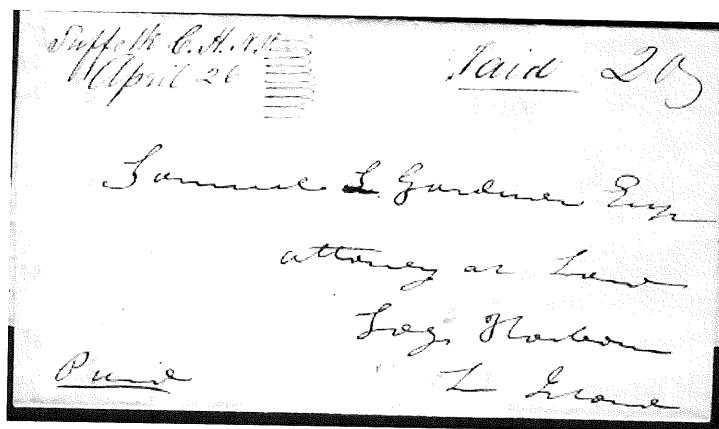 Suffolk C. H. N.Y.
April 26
Paid 20
Samuel L Gardiner Esqr
attorney at Law
Sag Harbour
L Island
Paid